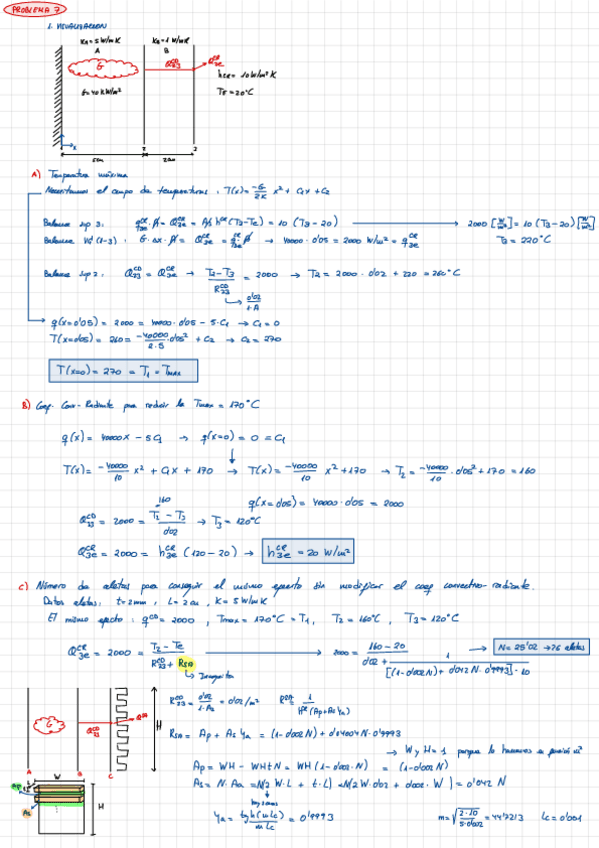 PROBLEMA 7
1. VISUALIZACION
KA = 5 W/mK KB = 1 W/mK
A B
G
Q̇23^CD Q̇3e^CR
hCR = 10 W/m²K
G = 40 KW/m³ TE = 20°C
x 2 3
5cm 2cm
A) Temperatura máxima
Necesitamos el campo de temperaturas: T(x) = -G/2K x² + C1x + C2
Balance sup 3: q̇3e^CR · A = Q̇3e^CR = A · h^CR (T3-Te) = 10 (T3-20) → 2000 [W/m²] = 10 (T3-20) [W/m²]
Balance Vol (1-3): G · Δx · A = Q̇3e^CR = q̇3e^CR · A → 40000 · 0'05 = 2000 W/m² = q̇3e^CR T3 = 220°C
Balance sup 2: Q̇23^CD = Q̇3e^CR → (T2-T3)/R23^CD = 2000 → T2 = 2000 · 0'02 + 220 = 260°C
0'02/1·A
q(x=0'05) = 2000 = 40000 · 0'05 - 5·C1 → C1 = 0
T(x=0'05) = 260 = -40000/2·5 · 0'05² + C2 → C2 = 270
T(x=0) = 270 = T1 = Tmax
B) Coef. Conv-Radiante para reducir la Tmax = 170°C
q(x) = 40000x - 5C1 → q(x=0) = 0 = C1
T(x) = -40000/10 x² + C1x + 170 → T(x) = -40000/10 x² + 170 → T2 = -40000/10 · 0'05² + 170 = 160
q(x=0'05) = 40000 · 0'05 = 2000
160
Q̇23^CD = 2000 = (T2 - T3)/0'02 → T3 = 120°C
Q̇3e^CR = 2000 = h3e^CR (120-20) → h3e^CR = 20 W/m²
C) Número de aletas para conseguir el mismo efecto sin modificar el coef convectivo-radiante.
Datos aletas: t = 2mm, L = 2cm, K = 5 W/mK
El mismo efecto: q^CD = 2000, Tmax = 170°C = T1, T2 = 160°C, T3 = 120°C
Q̇3e^CR = 2000 = (T2 - Te)/(R23^CD + RSA) → 2000 = (160-20)/(0'02 + 1/([(1-0'002N) + 0'042N · 0'9993] · 10)) → N = 25'02 → 26 aletas
G Q̇23^CD H
A B C
R23^CD = 0'02/1·As = 0'02/m² RSA = 1/(H^CR (Ap + As ηa))
RSA = Ap + As ηa = (1-0'002N) + 0'04204N · 0'9993
W y H = 1 porque lo hacemos en función m²
Ap = WH - WHtN = WH (1-0'002·N) = (1-0'002N)
As = N · Aa = N(2 W·L + t·L) = N(2 W·0'02 + 0'002·W) = 0'042 N
ηa = tgh(mLc)/mLc = 0'9993 m = √(2·10/5·0'002) = 44'7213 Lc = 0'001
W
Ap t
H
As